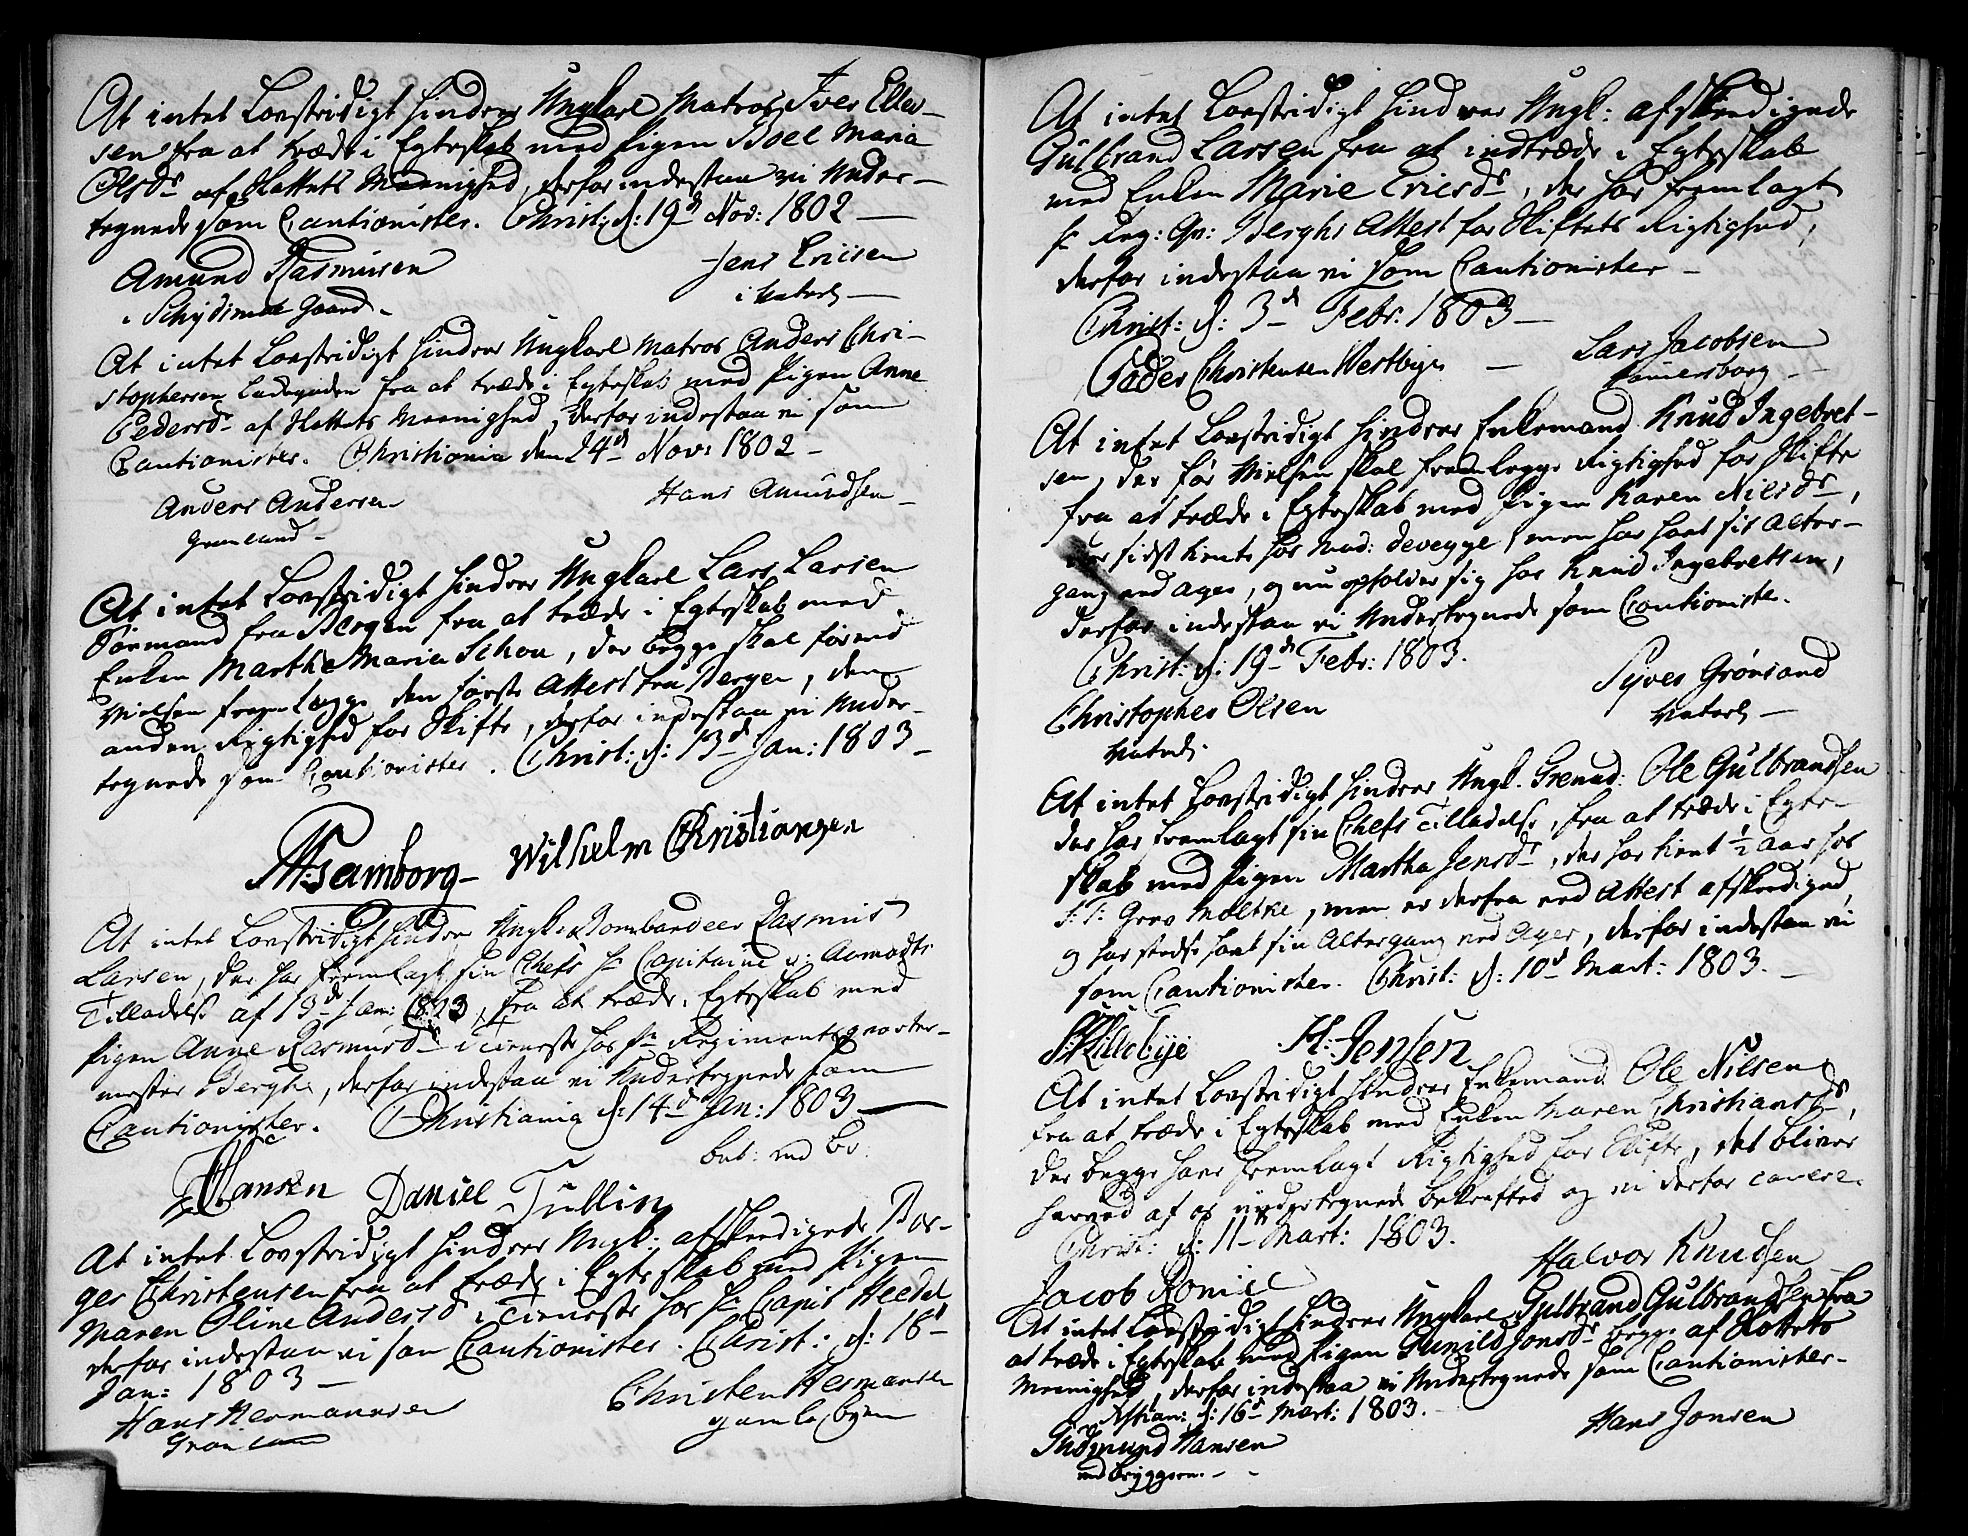 At intet Lovstridigt hindrer Ungkarl Matros Iver Eller-
sen fra at træde i Egteskab med Pigen Boel Maria
Olsdr af Slottets Meenighed, derfor indestaae vi Under-
tegnede som Cautionister. Christ: d: 19d Nov: 1802 —
Amund Rasmusen
Jens Ericsen
i Schydimae Gaard.
i Vaterl. —
At intet Lovstridigt hindrer Ungkarl Matros Anders Chri-
stophersen Ladegaden fra at træde i Egteskab med Pigen Anne
Pedersdr af Slottets Meenighed, derfor indestaae vi som
Cautionister. Christiania den 24d Nov: 1802 –
Anders Andersen
Hans Amundsen –
Grønland –
At intet Lovstridigt hindrer Ungkarl Lars Larsen
Tørmand fra Bergen fra at træde i Egteskab med
Enken Marthe Maria Schou, der begge skal forend
Vielsen fremlægge den første Attest fra Bergen, den
anden Rigtighed for Skifte, derfor indestaae vi Under-
tegnede som Cautionister. Christ: d: 13d Jan: 1803 –
Tamborg – Wilhelm Christiansen
At intet Lovstridigt hindrer Ungk: Bombardeer Rasmus
Larsen, der har fremlagt sin Chefs Hr Capitaine v: Aamodts
Tilladelse af 13de Jan: 1803, fra at træde i Egteskab med
Pigen Anne Rasmusdr i Tieneste hos Hr Regimentsqvarteer-
mester Bergh, derfor indestaae vi Undertegnede som
Cautionister. Christiania d: 14d Jan: 1803 —
Hansen Daniel Tullin
At intet Lovstridigt hindrer Ungk: afskeedigede Bør-
ger Christensen fra at træde i Egteskab med Pigen
Maren Oline Andersdr i Tieneste hos Hr Capit Heedel
derfor indestaae vi som Cautionister. Christ: d: 18d
Jan: 1803 —
Hans Hermannsen
Christen Hermansen
Grønland
gamlebyen
At intet Lovstridigt hindrer Ungk: afskeedigede
Gulbrand Larsen fra at indtræde i Egteskab
med Enken Marie Ericsdr, der har fremlagt
Hr Reg: Qv: Berghs Attest for Skiftets Rigtighed,
derfor indestaae vi som Cautionister –
Christ: d: 3d Febr. 1803 –
Peder Christensen Westbye –
Lars Jacobsen
Hamersborg –
At intet Lovstridigt hindrer Enkemand Knud Ingebret-
sen, der før Vielsen skal fremlægge Rigtighed for Skifte
fra at træde i Egteskab med Pigen Karen Nilsdr,
der sidst tiente hos Mad: Devegge, men har havt sit Alter-
gang ved Ager, og nu opholder sig hos Knud Ingebretsen,
derfor indestaae vi Undertegnede som Cautionister.
Christ: d: 19de Febr: 1803.
Syver Grønsand
Christopher Olsen
Vaterl –
Vaterl.
At intet Lovstridigt hindrer Ungk. Grenad: Ole Gulbrandsen
der har fremlagt sin Chefs Tilladelse, fra at træde i Egte-
skab med Pigen Martha Jensdr, der har tient ½ Aar hos
S: T: Grev Moltke, men er derfra ved Attest afskeediged,
og har stedse havt sin Altergang ved Ager, derfor indestaae vi
som Cautionister. Christ: d: 10d Mart: 1803. –
Killebye H. Jensen
At intet Lovstridigt hindrer Enkemand Ole Nilsen
fra at træde i Egteskab med Enken Maren Christiansdr,
der begge have fremlagt Rigtighed for Skifte, det bliver
herved af os undertegnede bekræfted og vi derfor cavere.
Christ: d: 11 Mart: 1803.
Halvor Knudsen
Jacob
At intet Lovstridigt hindrer Ungkarl Gulbrand Gulbrandsen fra
at træde i Egteskab med Pigen Gunild Jonsdr begge af Slottets
Meenighed, derfor indestaae vi Undertegnede som Cautionister –
Xstian: d: 16d Mart: 1803.
Hans Jonsen
Gudmund Hansen
ved Bryggeren. –